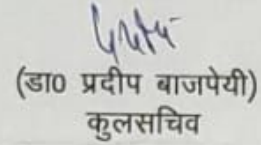 (डा0 प्रदीप बाजपेयी)
कुलसचिव